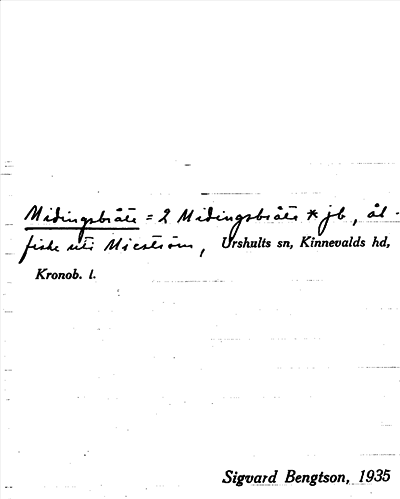 Midingsbråte = 2 Midingsbråte * jb, ål-
fiske uti Mieström, Urshults sn, Kinnevalds hd,
Kronob. l.
Sigvard Bengtson, 1935